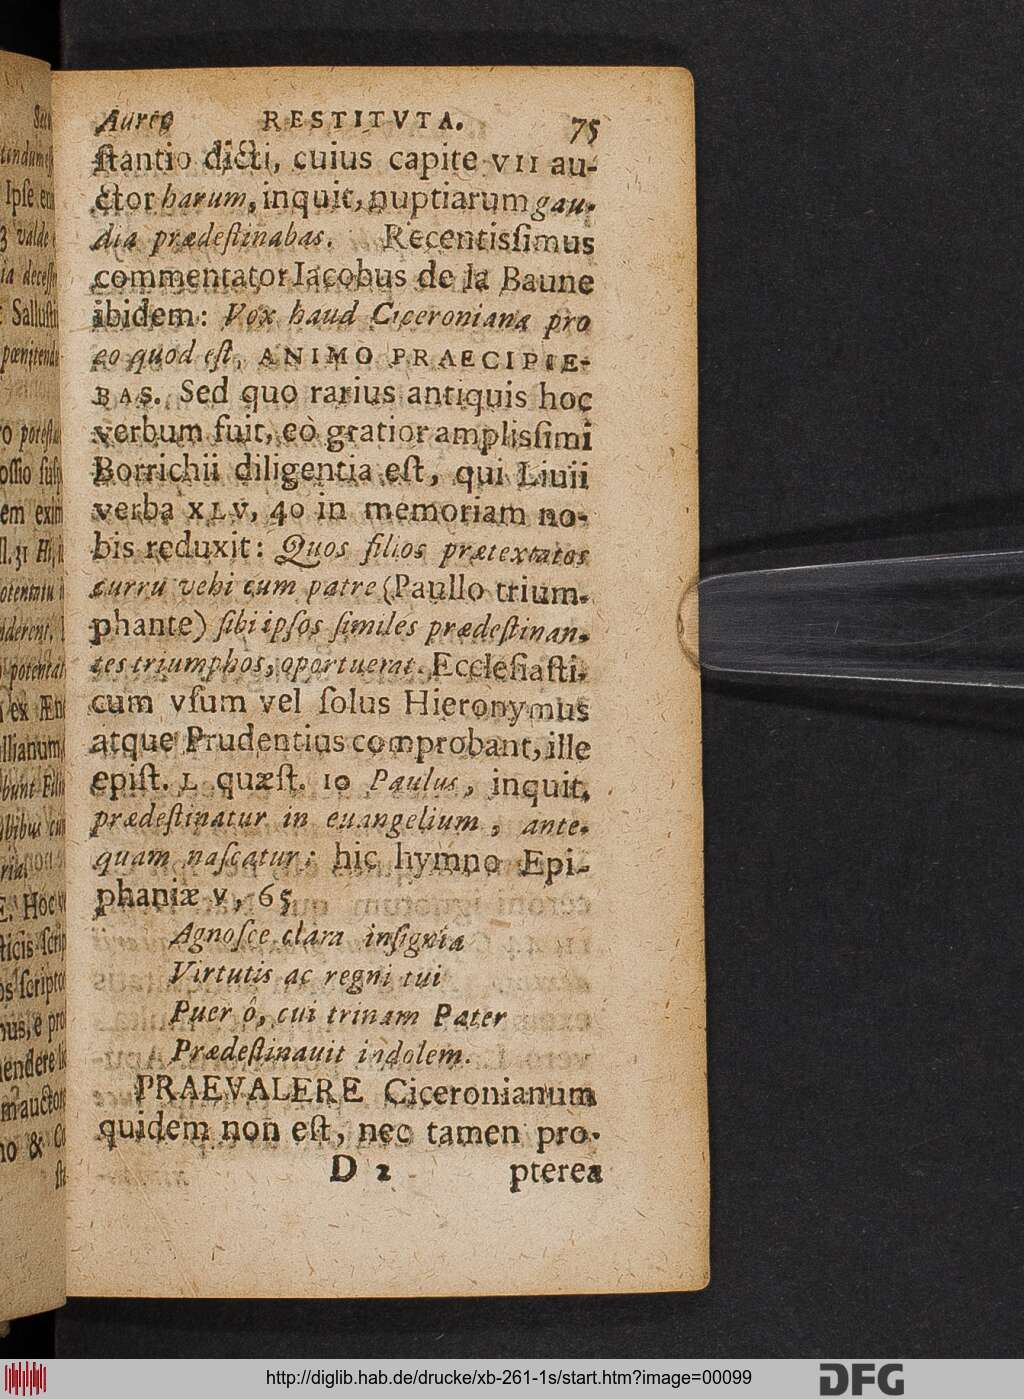 Aureo RESTITVTA. 75
ſtantio dicti, cuius capite VII au-
ctor harum, inquit, nuptiarum gau-
dia prædeſtinabas. Recentisſimus
commentator Iacobus de la Baune
ibidem: Vox haud Ciceroniana pro
eo quod eſt, ANIMO PRAECIPIE-
BAS. Sed quo rarius antiquis hoc
verbum fuit, eò gratior amplisſimi
Borrichii diligentia eſt, qui Liuii
verba XLV, 40 in memoriam no-
bis reduxit: Quos filios prætextatos
curru vehi cum patre (Paullo trium-
phante) ſibi ipſos ſimiles prædeſtinan-
tes triumphos, oportuerat. Eccleſiaſti-
cum vſum vel ſolus Hieronymus
atque Prudentius comprobant, ille
epiſt. L quæſt. 10 Paulus, inquit,
prædeſtinatur in euangelium, ante-
quam naſcatur: hic hymno Epi-
phaniæ V, 65
Agnoſce clara inſignia
Virtutis ac regni tui
Puer ô, cui trinam Pater
Prædeſtinauit indolem.
PRAEVALERE Ciceronianum
quidem non eſt, nec tamen pro-
D 2 pterea
http://diglib.hab.de/drucke/xb-261-1s/start.htm?image=00099
DFG